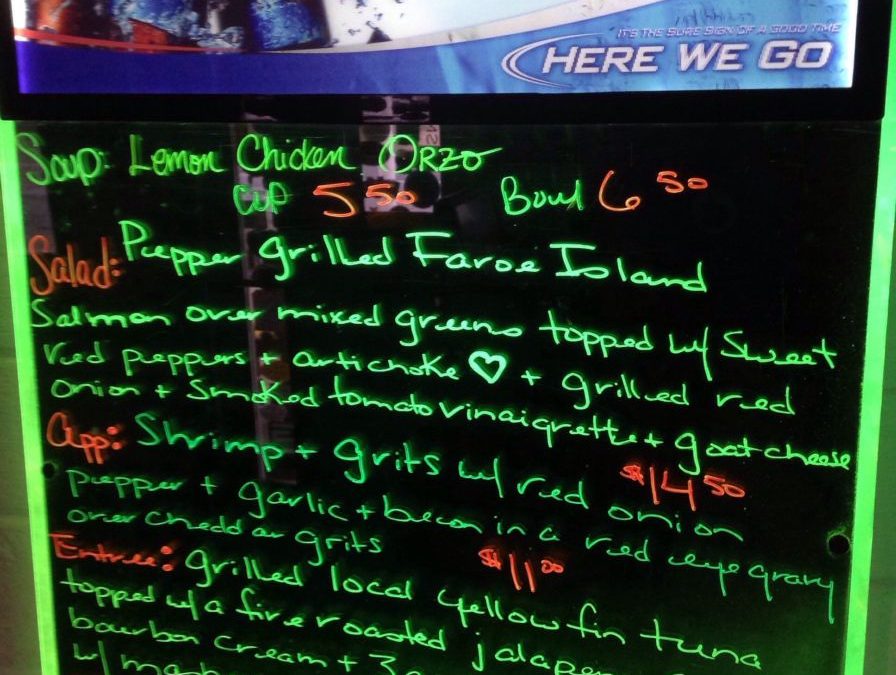 IT'S THE SURE SIGN OF A GOOD TIME
HERE WE GO
Soup: Lemon Chicken Orzo
Cup 5 50 Bowl 6 50
Salad: Pepper grilled Faroe Island
Salmon over mixed greens topped w/ Sweet
red peppers + artichoke ♡ + grilled red
onion + Smoked tomato vinaigrette + goat cheese
$14 50
App: Shrimp + grits w/ red onion
pepper + garlic + bacon in a red eye gravy
over cheddar grits $11 00
Entree: grilled local yellow fin tuna
topped w/ a fire roasted
bourbon cream +
w/